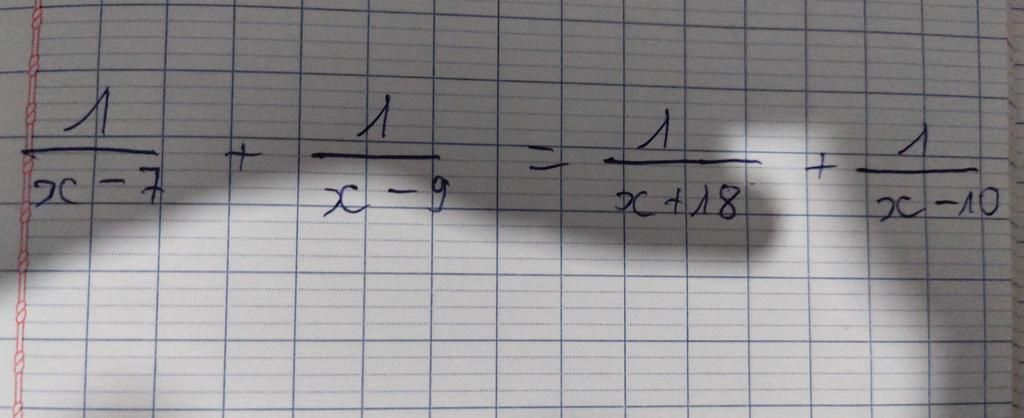 1/(x - 7) + 1/(x - 9) = 1/(x + 18) + 1/(x - 10)